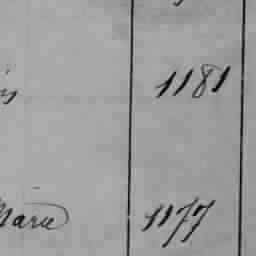 1181
Marie 1177